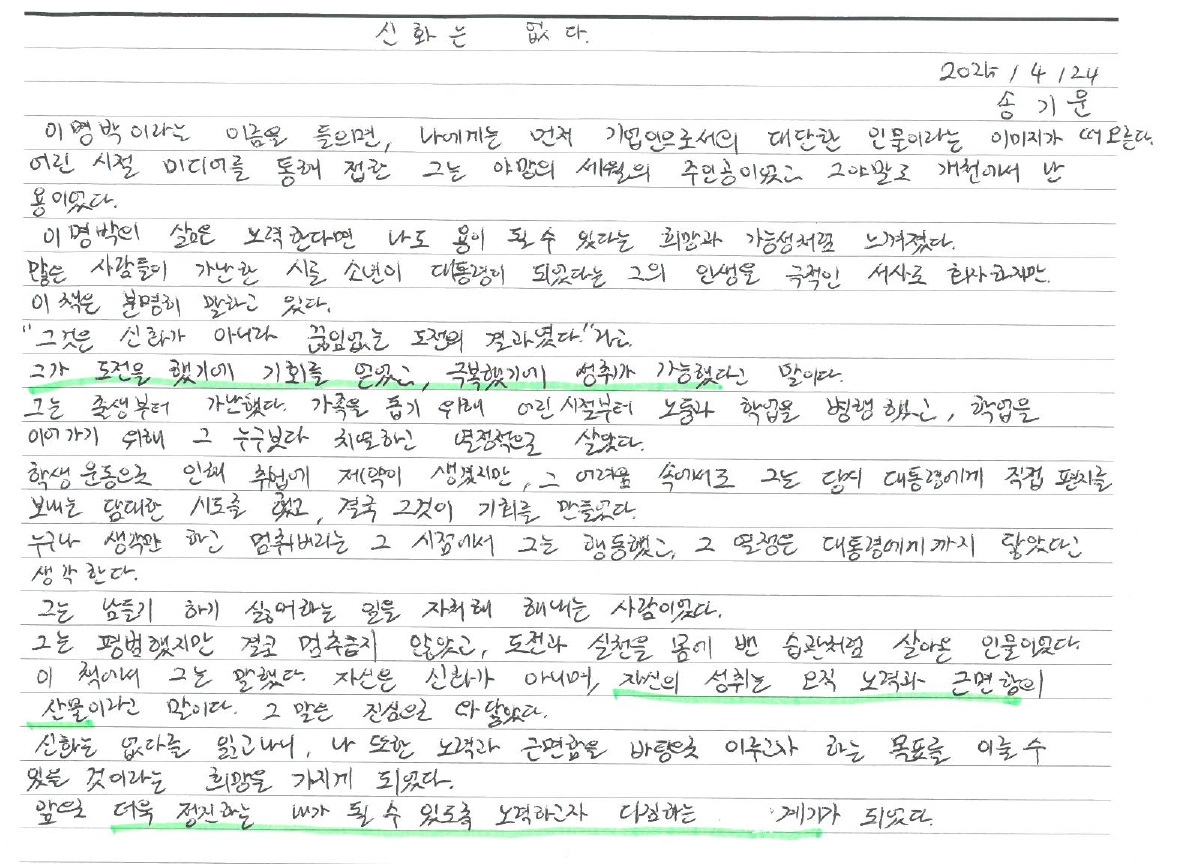 신화는 없다.
2025/4/24
송기문
이명박이라는 이름을 들으면, 나에게는 먼저 기업인으로서의 대단한 인물이라는 이미지가 떠오른다.
어린 시절 미디어를 통해 접한 그는 야망의 세월의 주인공이었고 그야말로 개천에서 난
용이었다.
이명박의 삶은 노력한다면 나도 용이 될 수 있다는 희망과 가능성처럼 느껴졌다.
많은 사람들이 가난한 시골 소년이 대통령이 되었다는 그의 인생을 극적인 서사로 회자하지만.
이 책은 분명히 말하고 있다.
"그것은 신화가 아니라 끊임없는 도전의 결과였다."라고.
그가 도전을 했기에 기회를 얻었고, 극복했기에 성취가 가능했다고 말이다.
그는 출생부터 가난했다. 가족을 돕기 위해 어린시절부터 노동과 학업을 병행했고, 학업을
이어가기 위해 그 누구보다 치열하고 열정적으로 살았다.
학생운동으로 인해 취업에 제약이 생겼지만, 그 어려움 속에서도 그는 당여 대통령에게 직접 편지를
보내는 담대한 시도를 했고, 결국 그것이 기회를 만들었다.
누구나 생각만 하고 멈춰버리는 그 시점에서 그는 행동했고, 그 열정은 대통령에게까지 닿았다고
생각한다.
그는 남들이 하기 싫어하는 일을 자처해 해내는 사람이었다.
그는 평범했지만 결코 멈추지 않았고, 도전과 실천을 몸에 밴 습관처럼 살아온 인물이었다.
이 책에서 그는 말했다. 자신은 신화가 아니며, 자신의 성취는 오직 노력과 근면함의
산물이라고 말이다. 그 말은 진심으로 와닿았다.
신화는 없다를 읽고나니, 나 또한 노력과 근면함을 바탕으로 이루고자 하는 목표를 이룰 수
있을 것이라는 희망을 가지게 되었다.
앞으로 더욱 정진하는 내가 될 수 있도록 노력하고자 다짐하는 계기가 되었다.